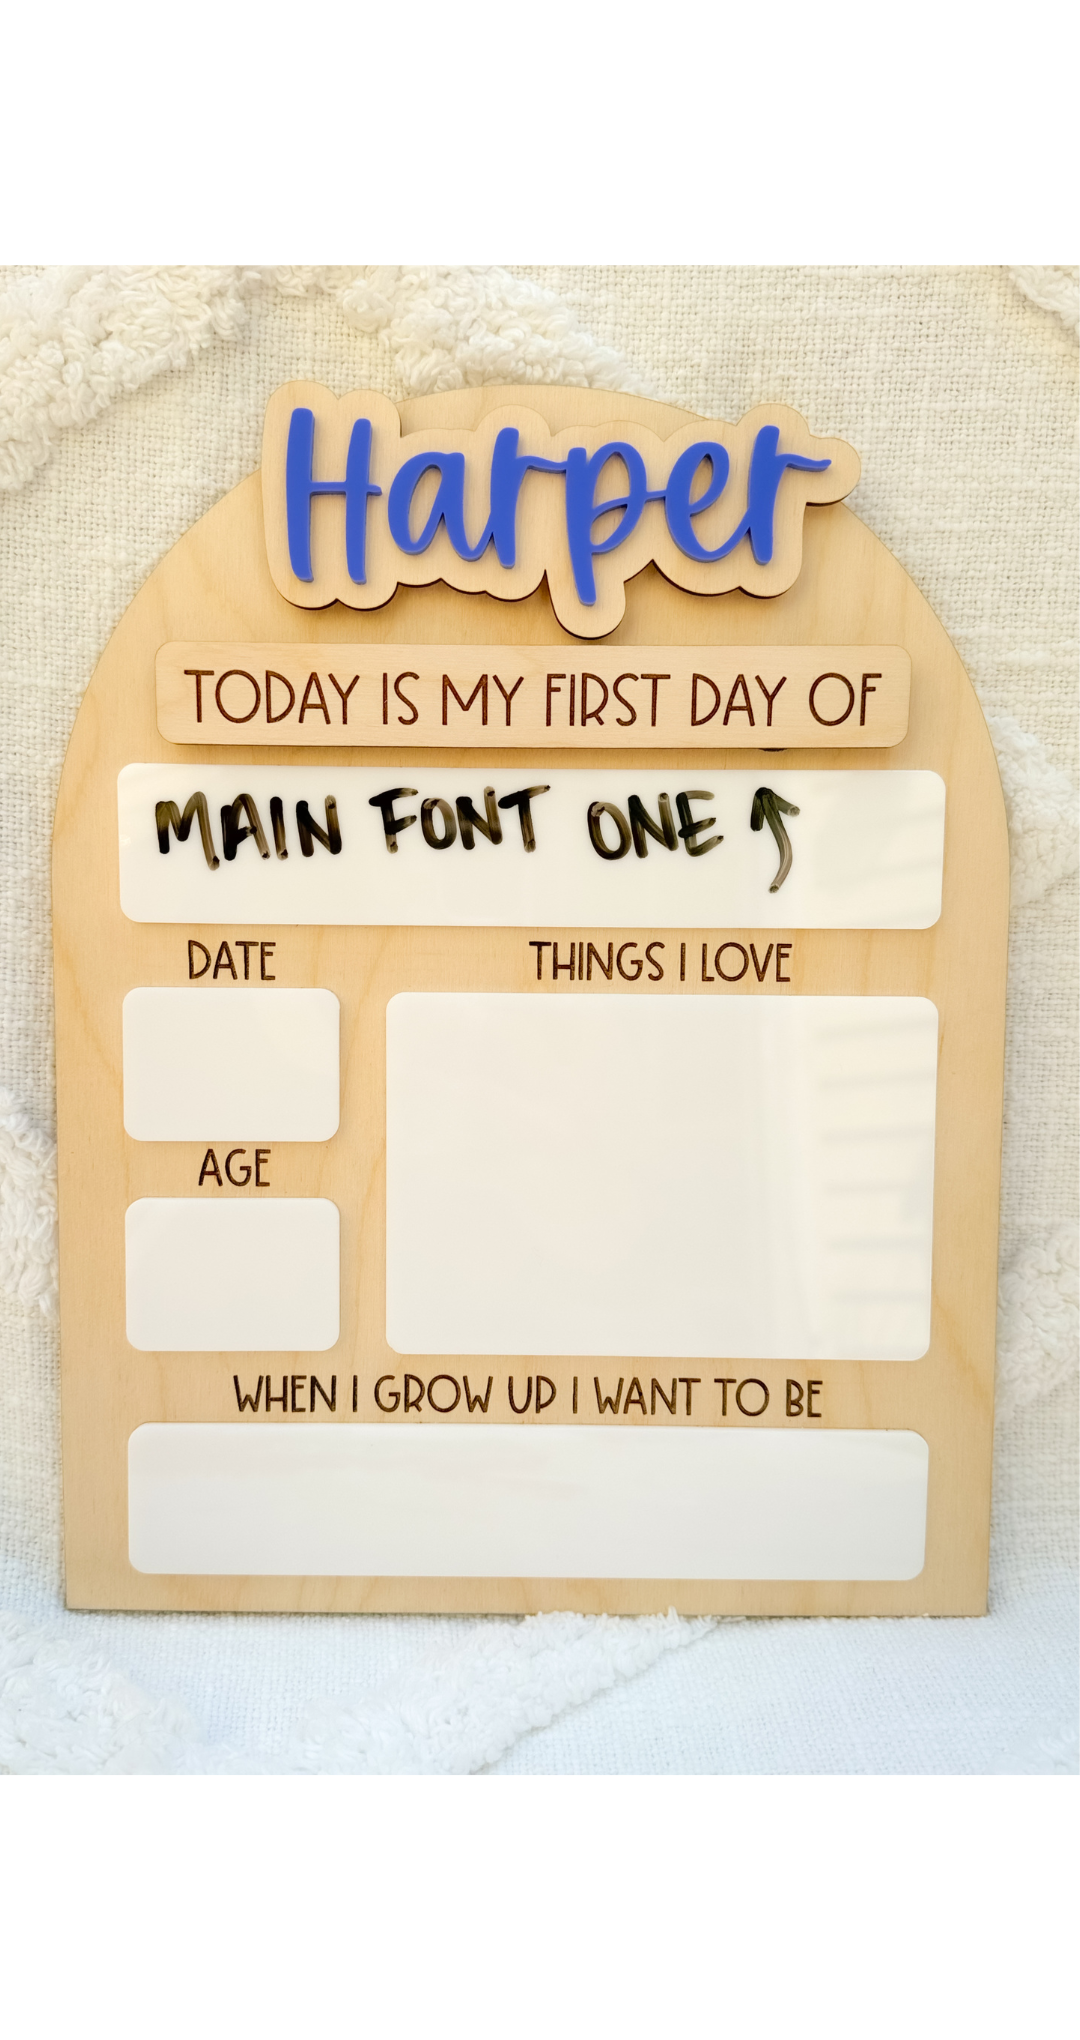 Harper
TODAY IS MY FIRST DAY OF
MAIN FONT ONE ↑
DATE
THINGS I LOVE
AGE
WHEN I GROW UP I WANT TO BE